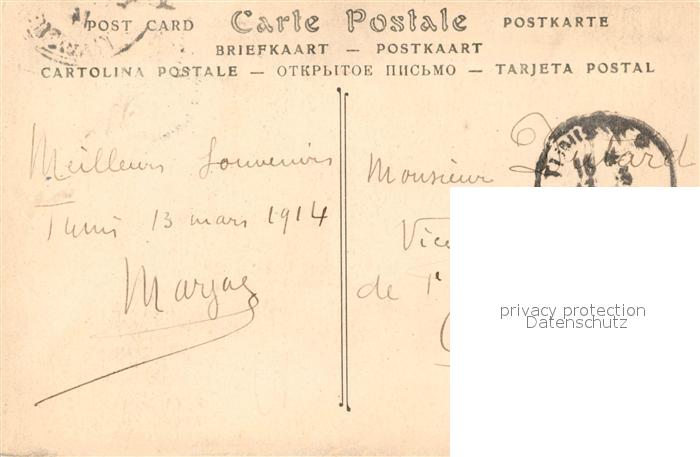 POST CARD Carte Postale POSTKARTE
BRIEFKAART — POSTKAART
CARTOLINA POSTALE — ОТКРЫТОЕ ПИСЬМО — TARJETA POSTAL
Meilleurs Souvenirs
Tunis 13 mars 1914
Monsieur
Vice
de l'
privacy protection
Datenschutz